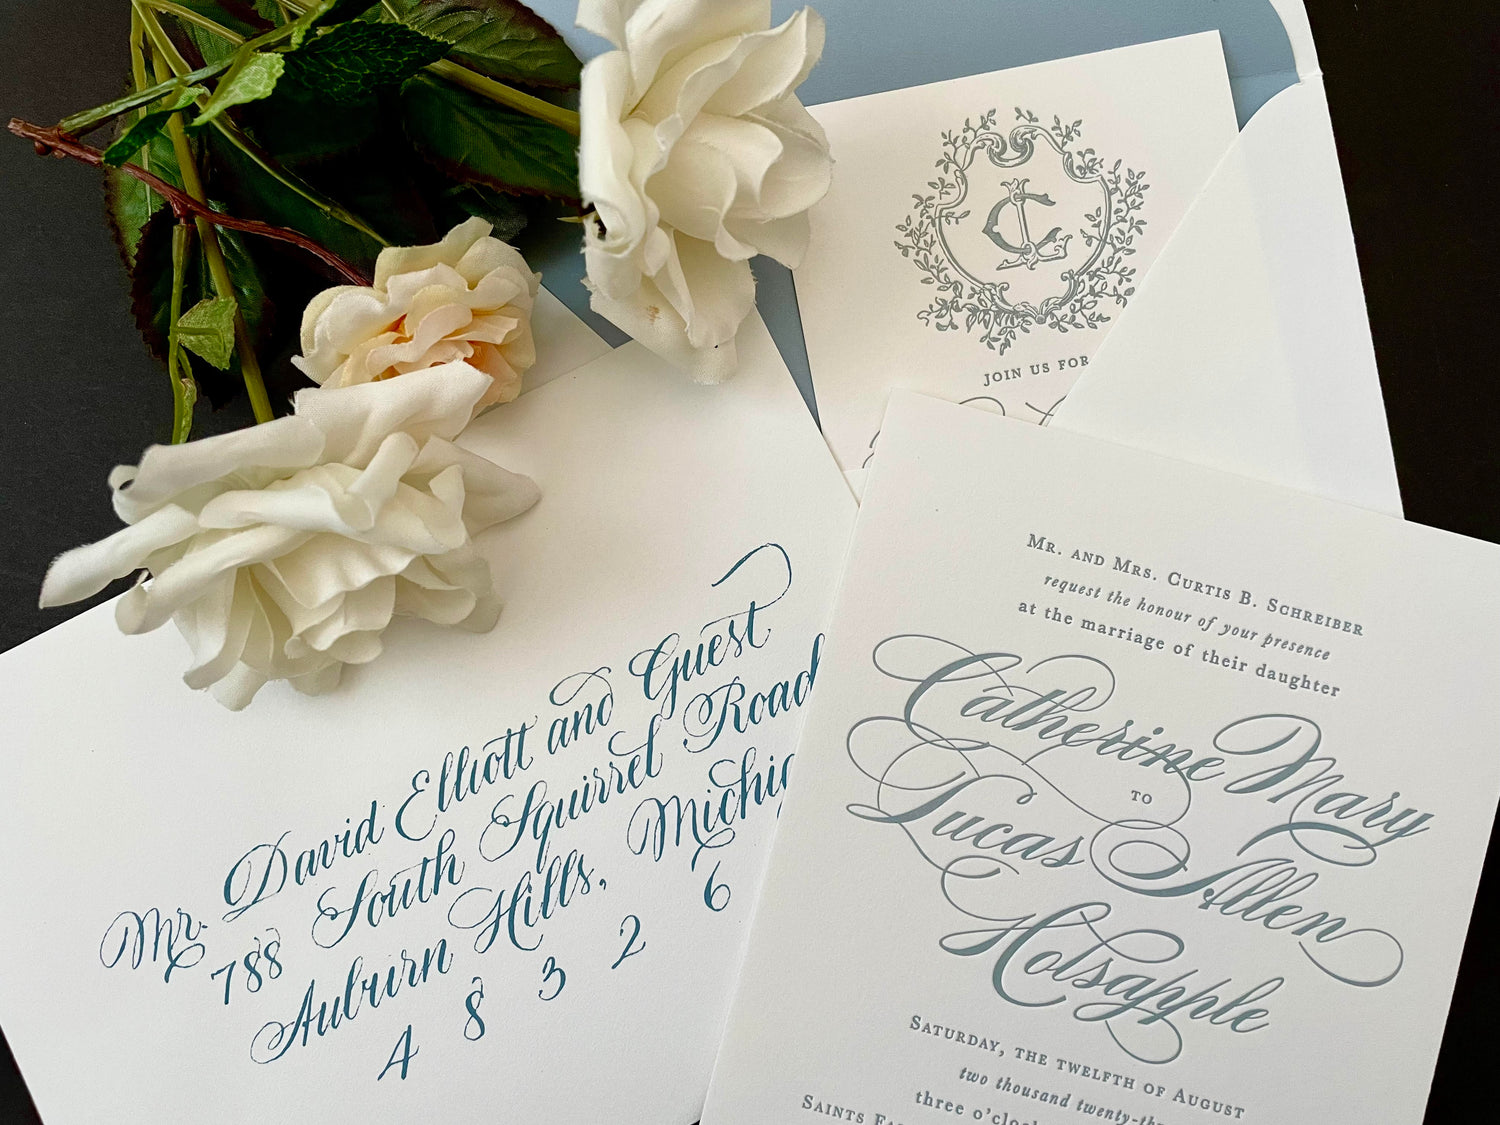 CL
JOIN US FOR
Mr. David Elliott and Guest
788 South Squirrel Road
Auburn Hills, Michig
4 8 3 2 6
MR. AND MRS. CURTIS B. SCHREIBER
request the honour of your presence
at the marriage of their daughter
Catherine Mary
TO
Lucas Allen
Holsapple
SATURDAY, THE TWELFTH OF AUGUST
two thousand twenty-th
three o'cloc
SAINTS FA